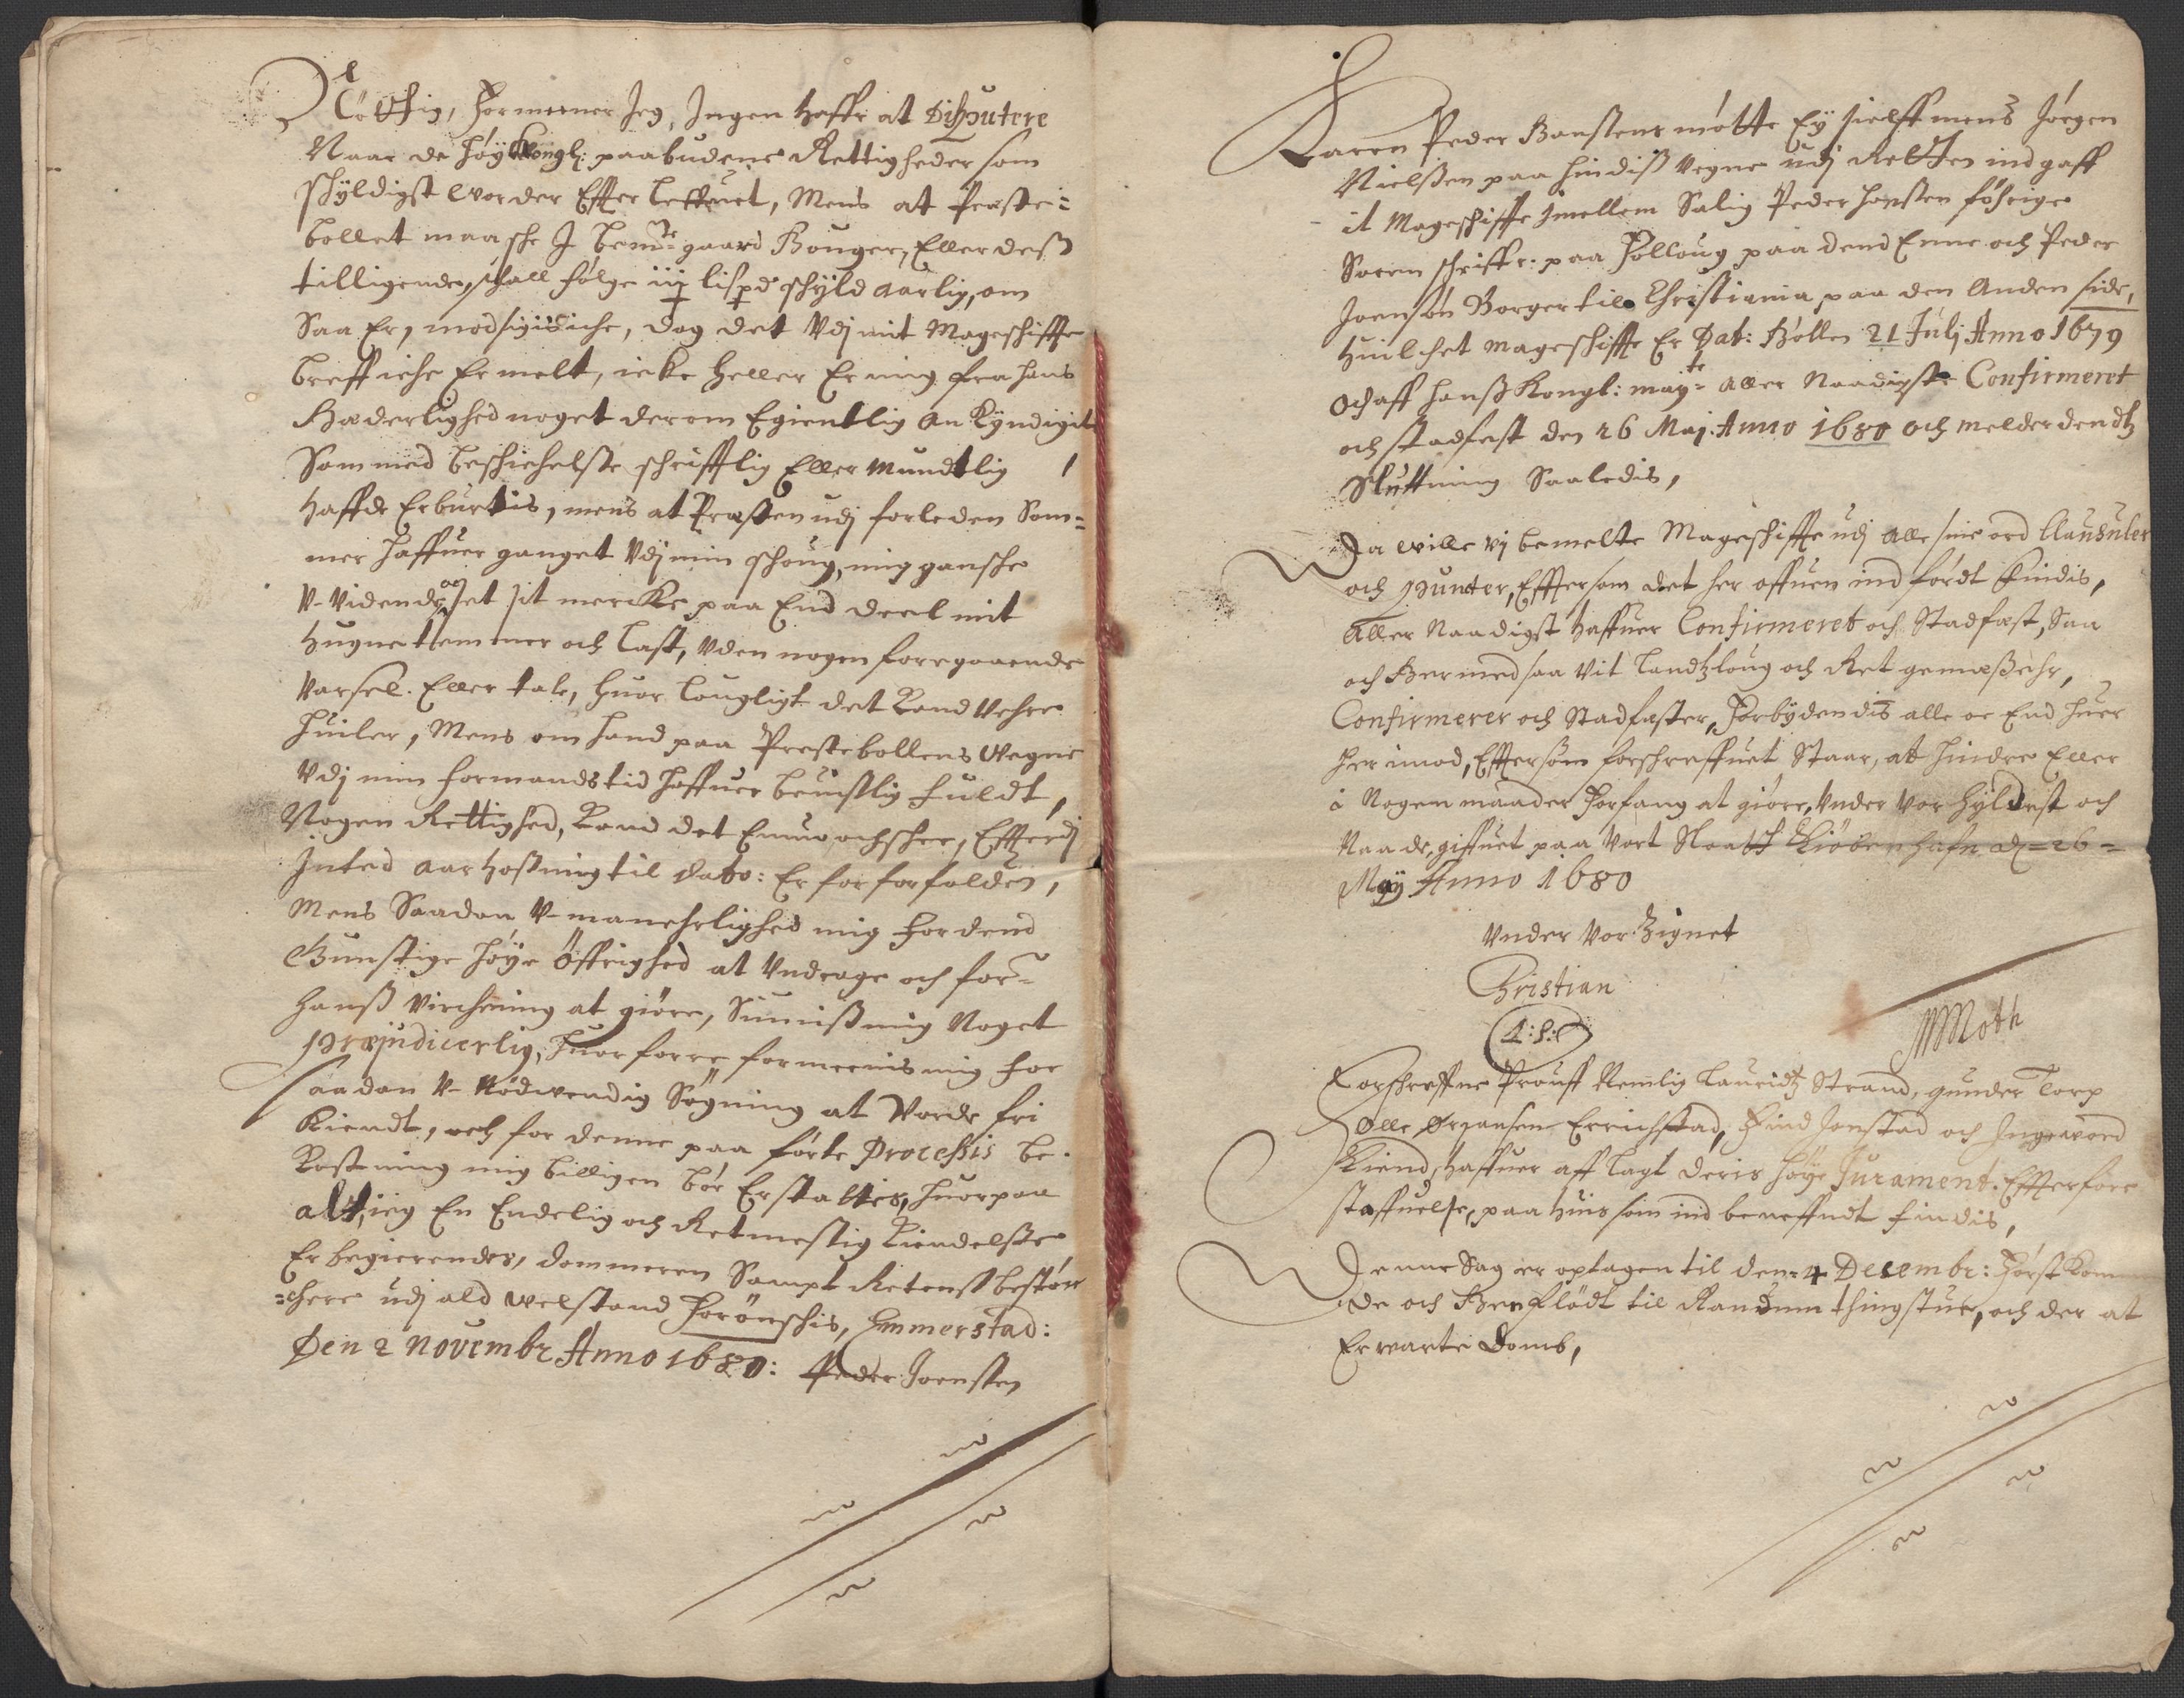 Löttig, Formeener Jeg, Ingen haffr at Disputere
Naar de Høy Kongl: paabudene Rettigheder som
schyldigst worder Effter leffuet, Mens at Preste=
bollet maa sche J bemte gaard Bouger, Eller deß
tilligende, schall følge iij lispd schyld aarlig, om
Saa Er, modsigis iche, dog det Udj mit Mageschiffte
breff iche Ermelt, icke heller Er mig fra hans
Hæderlighed noget derom Egientlig an Kyndigit
Som med beschichelße schrifftlig Eller Mundtlig
haffde Erburtis, mens at Præsten udj forleden Som=
mer haffuer ganget Udj min schoug, mig gansche
U-Vidende, och set sit mercke paa End deel mit
hugne tømmer och Last, Uden nogen foregaaende
Varsel. Eller tale, huor lougligt det Kand Vehre
huiler, Mens om hand paa Prestebollens Wegne
Udj min formands tid haffuer beuislig fuldt,
Nogen Rettighed, Kand det Ennu och schee, Effterdj
Inted aar hosning til dato: Er for forfalden,
Mens Saadan U-manehrlighed mig for dend
Gunstige høye Øffrighed at Undrage och for=
hanß Virchning at giøre, Siuniß mig Noget
præjudicerlig, Huor forre formeenis mig for
saadan U-Nødwendig Søgning at Vorde fri
Kiendt, och for denne paa førte Processis be
Kostning mig billigen bør Erstattis, huorpaa
alt, ieg En Endelig och Retmestig Kiendelße
Er begierendes, dommeren Sampt Retenß beston
=chere udj ald welstand forønschis, Emmerstad:
Den 2 Novembr Anno 1680: Peder Joensen
Karen Peder Hansens møtte Ey sielff mens Jørgen
Nielßen paa hindiß Vegne udj Retten ind gaff
it Mageschiffte Imellem Salig Peder Hanßen føhrige
Soren schriffr: paa Folloug paa dend Enne och Peder
Joensøn Borger til Christiania paa den Anden side,
huilchet mageschiffte Er Dat: Bollen 21 Julj Anno 1679
och aff hanß Kongl: mayte aller Naadigste Confirmeret
och stadfest den 26 Maj. Anno 1680 och melder dendtz
Sluttning Saaledis,
Da wille vj bemelte Mageschiffte udj alle sine ord Clausuler
och Puncter, Efftersom det her offuen ind førdt Findis,
Aller Naadigst haffuer Confirmeret och Stadfæst, Saa
och Hermed saa Vit Landtzloug och Ret gemæßehr,
Confirmerer och Stadfæster, Forbydendis alle oc End huer
her imod, Efftersom forschreffuet Staar, at hindre Eller
i Nogen maader Forfang at giøre, Under Vor hyldest och
Naade, giffuet paa Vort Slott Kiøbenhafn d. 26=
Maij Anno 1680
Under Vor Zignet
Christian
(L:S:)
MMoth
Forschreffne Prouff Nemlig Lauridtz Strand, gunder Torp
Olle Ørjansen Errichstad, Find Jonstad och Ingeword
Kiend, haffuer aff lagt deris høye Jurament. Effterfore
staffuelse, paa huis som ind beneffndt findis,
Denne Sag er optagen til den 4 Decembr: Først Kom
de och Henflødt til Randum thingstue, och der at
Erwarte Domb,